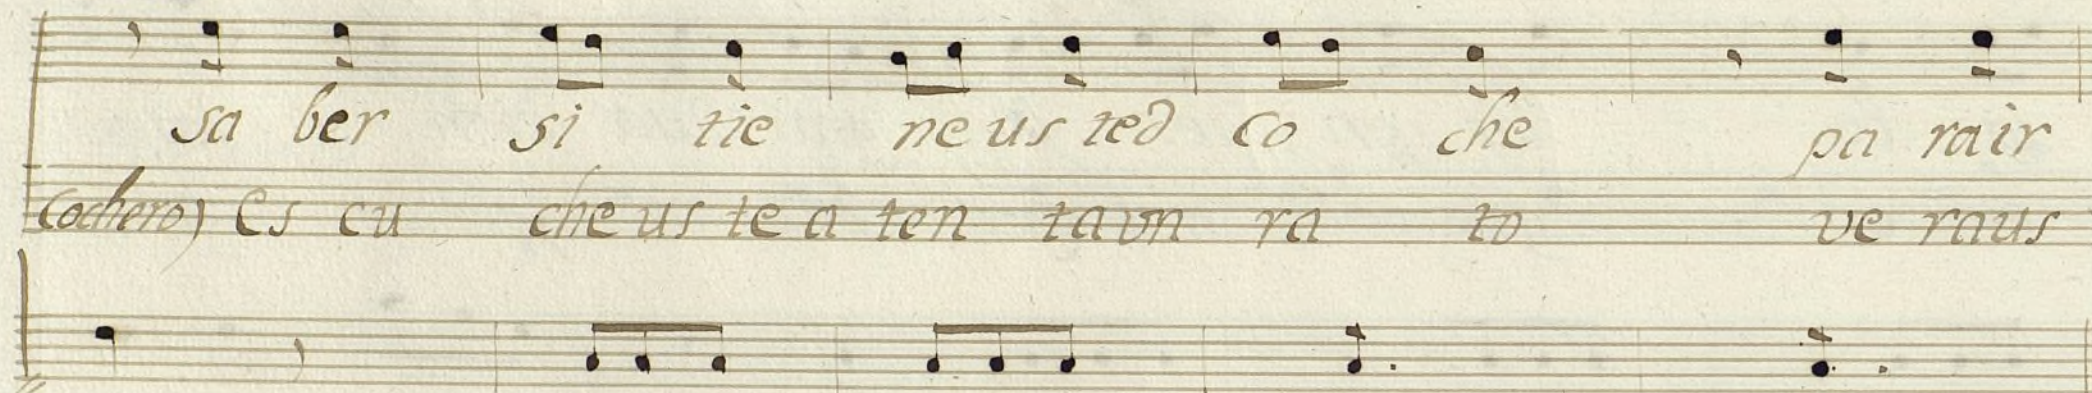 sa ber si tie ne us ted co che pa rair
Cochero) es cu che us te a ten ta vn ra to ve raus